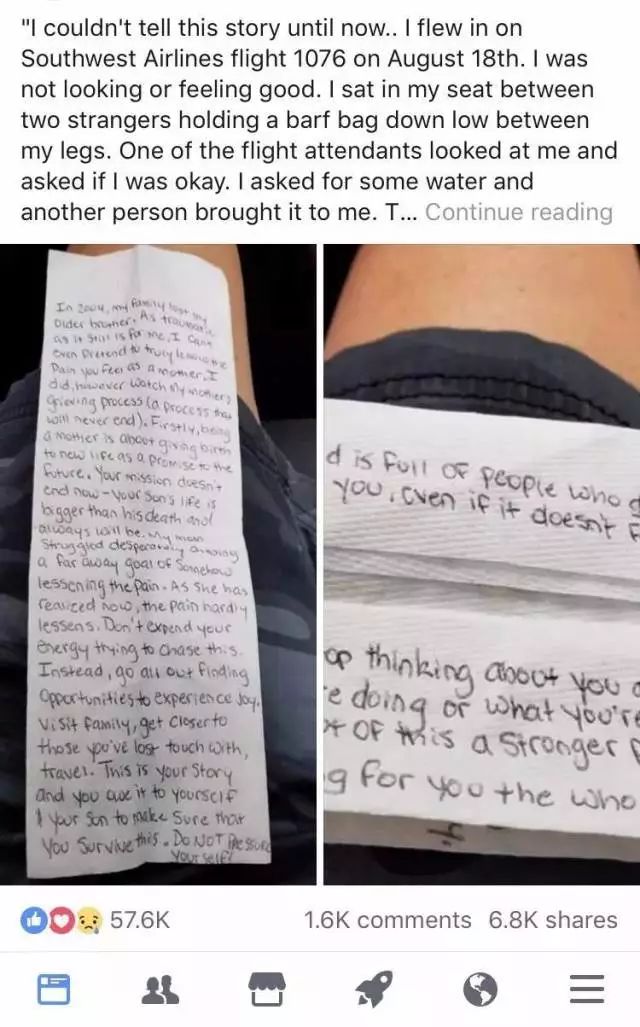 "I couldn't tell this story until now.. I flew in on
Southwest Airlines flight 1076 on August 18th. I was
not looking or feeling good. I sat in my seat between
two strangers holding a barf bag down low between
my legs. One of the flight attendants looked at me and
asked if I was okay. I asked for some water and
another person brought it to me. T... Continue reading
In 2004, my family lost my
Older brother. As traumatic
as it still is for me, I can't
even pretend to truly know the
Pain you feel as a mother. I
did, however watch my mothers
Grieving process (a process that
will never end). Firstly, being
a mother is about giving birth
to new life as a promise to the
future. Your mission doesn't
end now - your son's life is
bigger than his death and
always will be. My mom
Struggled desperately
a far away goal of Somehow
lessening the pain. As she has
realized now, the pain hardly
lessens. Don't expend your
energy trying to chase this.
Instead, go all out finding
Opportunities to experience Joy.
Visit family, get closer to
those you've lost touch with,
travel. This is your Story
and you owe it to yourself
& your son to make sure that
you Survive this. Do NOT Pressure
yourself!
d is full of people who
you, even if it doesn't
op thinking about you
e doing or what you're
of this a stronger
g for you the who
57.6K 1.6K comments 6.8K shares